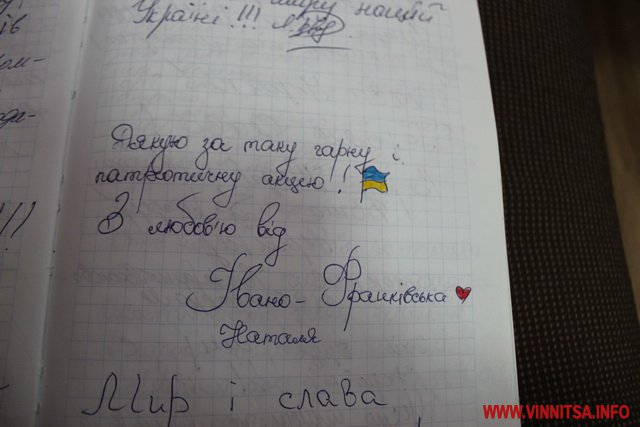 миру нашій
Україні !!!
ів
ом-
Дякую за таку гарну і
патріотичну акцію!
З любов'ю від
Івано-Франківська
Наталя
!!)
Мир і слава
WWW.VINNITSA.INFO